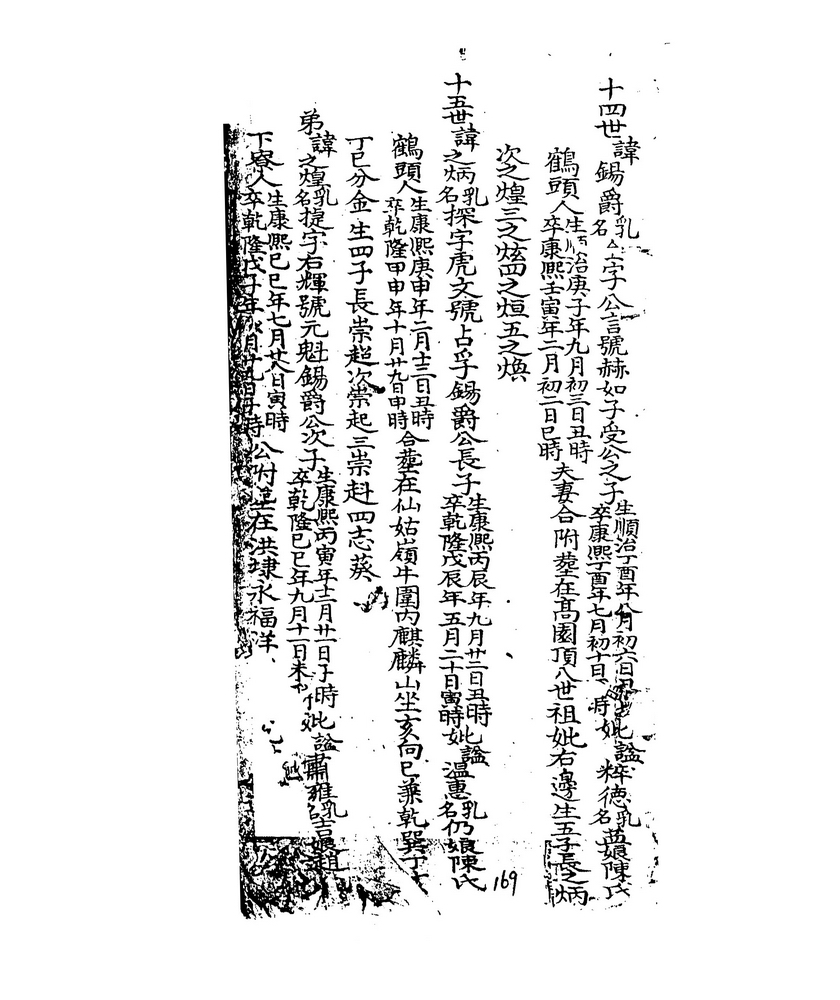 十四世諱錫爵乳名 字公言號赫如子受公之子生順治丁酉年八月初六日 卒康熙丁酉年七月初十日 時妣謚粹德乳名 娘陳氏
鶴頭人生順治庚子年九月初三日丑時卒康熙壬寅年二月初二日巳時夫妻合附塟在高園頂八世祖妣右邊生五子長之炳
次之煌三之炫四之烜五之煥
十五世諱之炳乳名探字虎文號占孚錫爵公長子生康熙丙辰年九月廿二日丑時卒乾隆戊辰年五月二十日寅時妣謚溫惠乳名仍娘陳氏
鶴頭人生康熙庚申年二月十二日丑時卒乾隆甲申年十月廿九日申時合塟在仙姑嶺牛圍內麒麟山坐亥向巳兼乾巽
丁巳分金生四子長崇超次崇起三崇赳四志葵
弟諱之煌乳名提字右輝號元魁錫爵公次子生康熙丙寅年十二月廿一日子時卒乾隆己巳年九月十一日未 妣謚肅雍乳名 娘趙
下寮人生康熙己巳年七月廿八日寅時卒乾隆戊子年 月廿九日 時公附 在洪埭永福洋
169